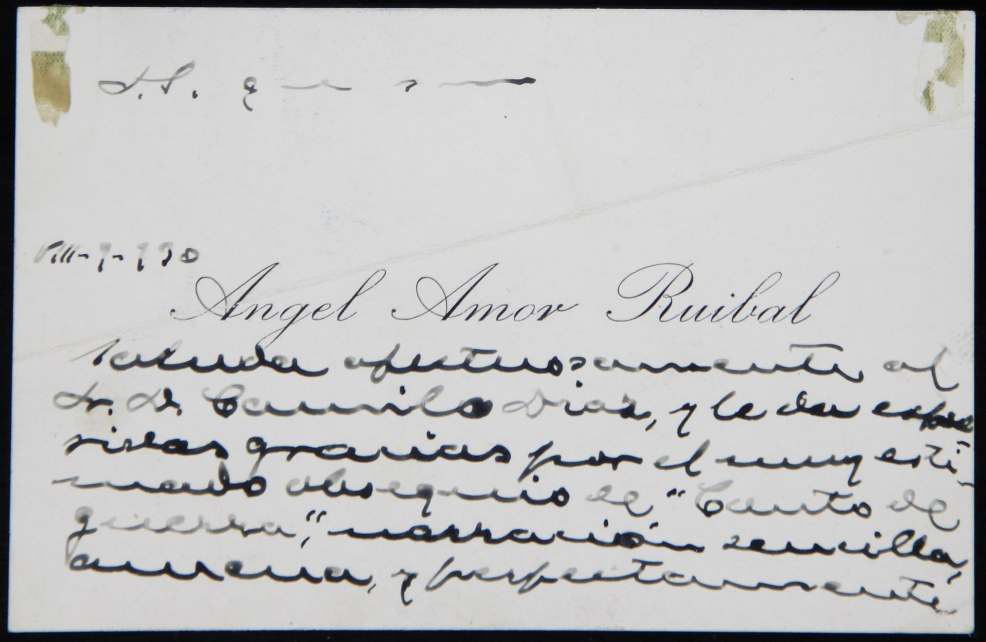 VIII-9-930
Angel Amor Ruibal
saluda afectuosamente al
Sr. D. Camilo Díaz, y le da expre
sivas gracias por el muy esti-
mado obsequio de "Canto de
guerra," narración sencilla,
amena, y perfectamente